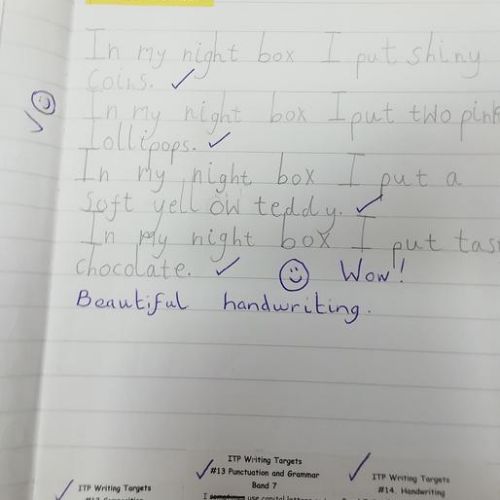 In my night box I put shiny
coins.
In my night box I put two pink
lollipops.
In my night box I put a
soft yellow teddy.
In my night box I put
chocolate.
Wow!
Beautiful handwriting.
ITP Writing Targets
#13 Punctuation and Grammar
Band 7
ITP Writing Targets
ITP Writing Targets
#14. Handwriting